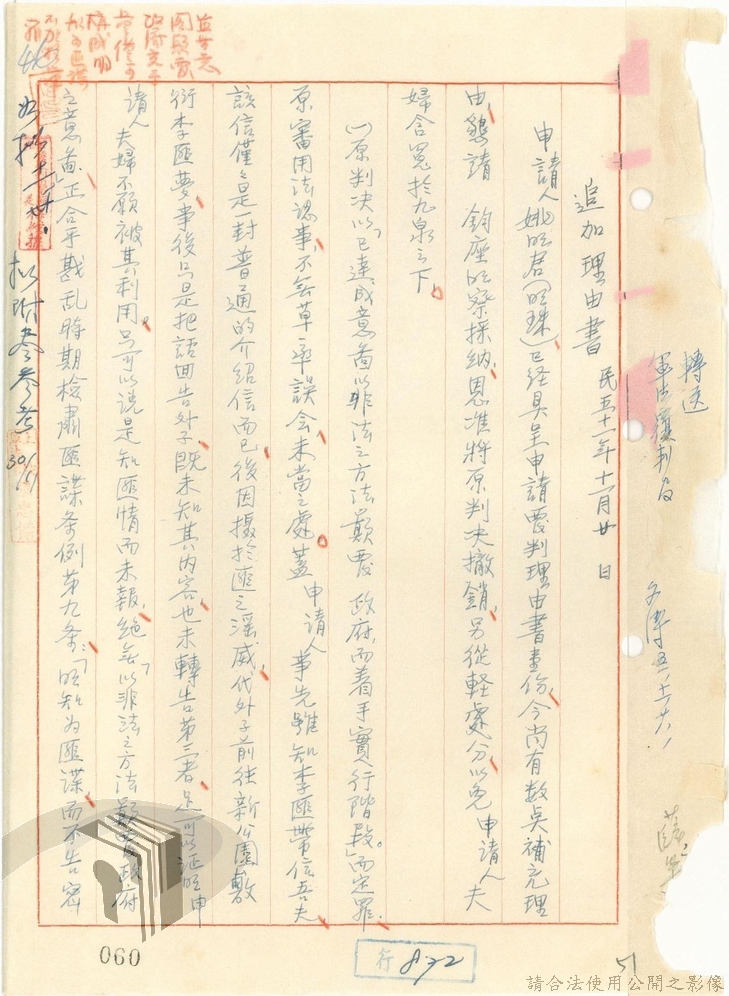 轉送
軍法覆判局
追加理由書 民五十一年十一月廿 日
申請人姚明君(明珠)已経具呈申請覆判理由書壹份,今尚有数点補充理
由,懇請 鈞座明察採納,恩准將原判决撤銷,另從軽處分以免 申請人夫
婦含冤於九泉之下。
(一)原判决以「已達成意圖以非法之方法顛覆 政府而着手實行階段。」而定罪,
原審用法認事,不無草率誤会未當之處。蓋 申請人事先雖知李匪帶信吾夫
該信僅僅是一封普通的介紹信而已,後因攝於匪之淫威,代外子前往新公園敷
衍李匪夢,事後只是把話回告外子,既未知其内容,也未轉告第三者,足可以証明申
請人夫婦不願被其利用。只可以說是知匪情而未報,絶無「以非法之方法顛覆政府
之意圖」正合乎戡乱時期檢肅匪諜条例第九条:「明知為匪諜而不告密
拟附卷参考
30/11
060
行 832
51
請合法使用公開之影像